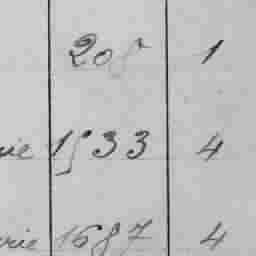 208 1
rie 1533 4
rie 1687 4